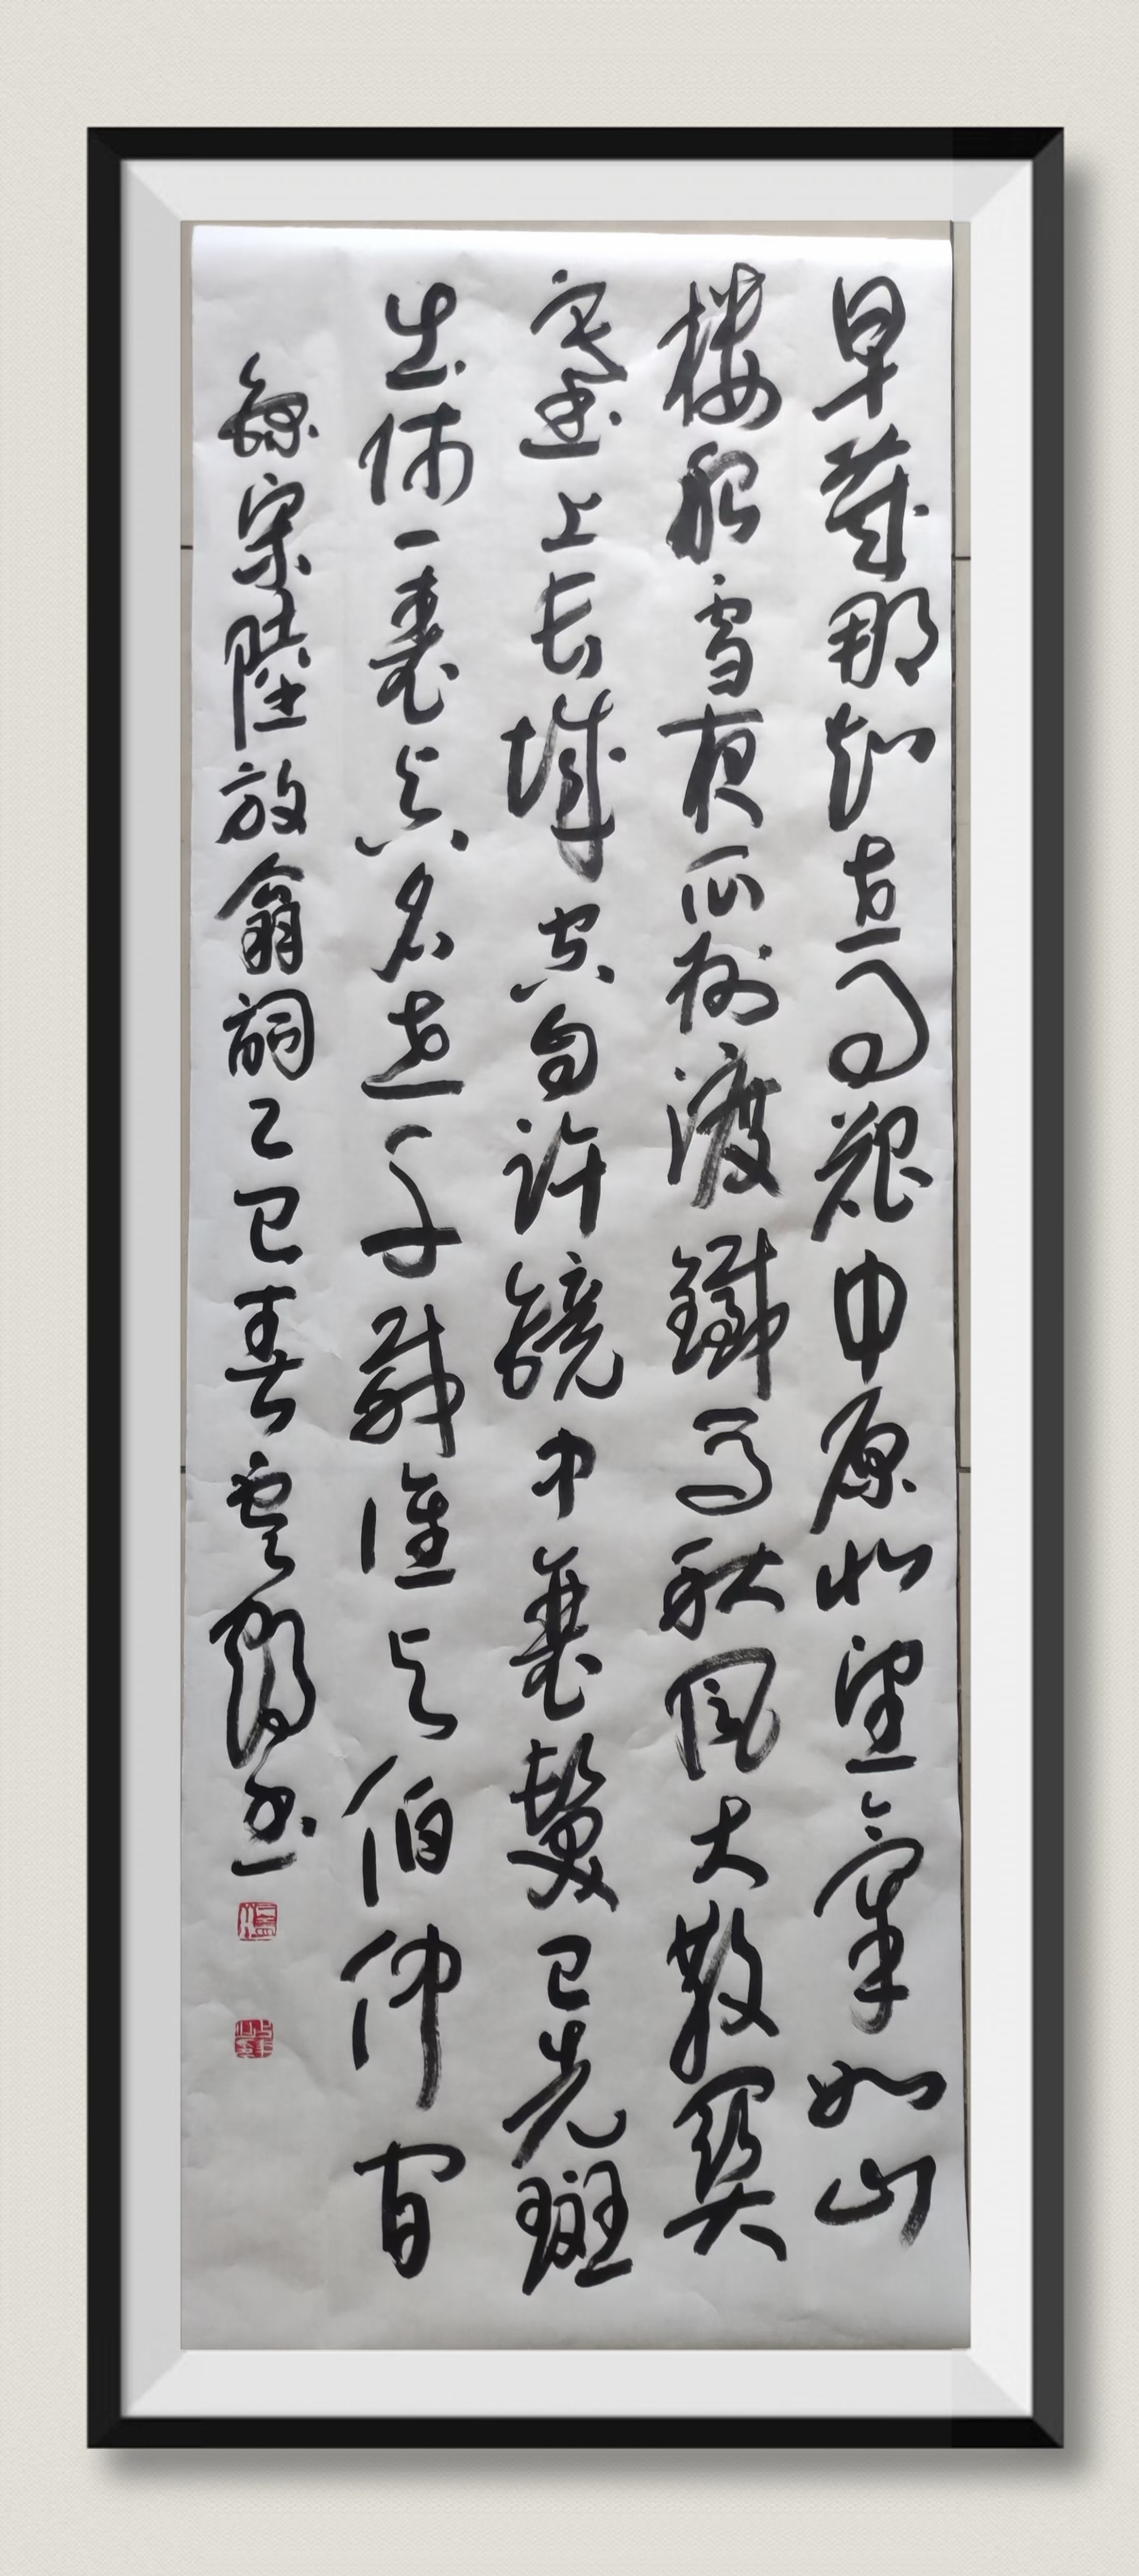 早歲那知世事艱中原北望氣如山
樓船雪夜瓜洲渡鐵馬秋風大散關
塞上長城空自許鏡中衰鬢已先斑
出師一表真名世千載誰伯仲間
錄宋陸放翁詞乙巳春雲鶴書